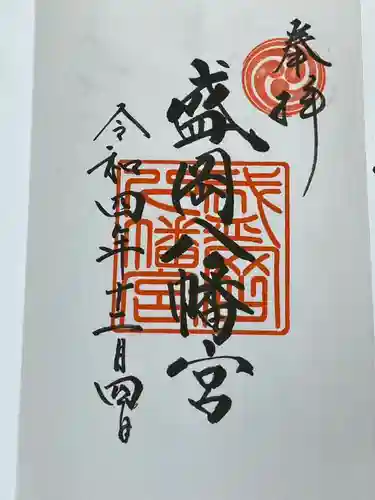 奉拝
盛岡八幡宮
令和四年十二月四日
盛岡
八幡宮